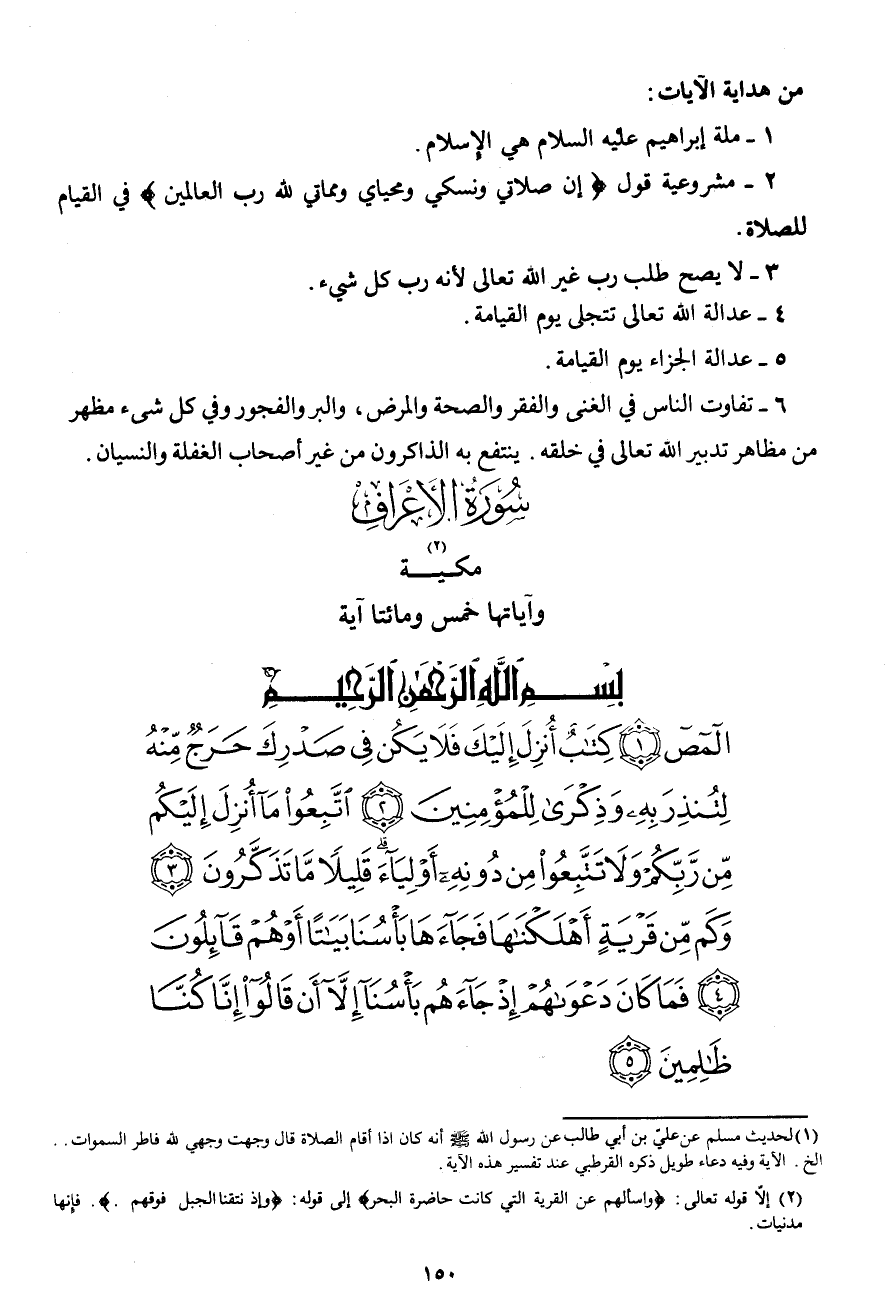 من هداية الآيات :
١ ـ ملة إبراهيم عليه السلام هي الإسلام .
٢ ـ مشروعية قول ﴿ إن صلاتي ونسكي ومحياي ومماتي لله رب العالمين ﴾ في القيام
للصلاة .
٣ ـ لا يصح طلب رب غير الله تعالى لأنه رب كل شيء .
٤ ـ عدالة الله تعالى تتجلى يوم القيامة .
٥ ـ عدالة الجزاء يوم القيامة .
٦ ـ تفاوت الناس في الغنى والفقر والصحة والمرض ، والبر والفجور وفي كل شىء مظهر
من مظاهر تدبير الله تعالى في خلقه . ينتفع به الذاكرون من غير أصحاب الغفلة والنسيان .
سُورَةُ الْأَعْرَافِ
(٢)
مكيـــة
وآياتها خمس ومائتا آية
بِسْــمِ ٱللَّهِ ٱلرَّحْمَٰنِ ٱلرَّحِيــمِ
الٓمٓصٓ ۝١ كِتَٰبٌ أُنزِلَ إِلَيْكَ فَلَا يَكُن فِى صَدْرِكَ حَرَجٌ مِّنْهُ
لِتُنذِرَ بِهِۦ وَذِكْرَىٰ لِلْمُؤْمِنِينَ ۝٢ ٱتَّبِعُوا۟ مَآ أُنزِلَ إِلَيْكُم
مِّن رَّبِّكُمْ وَلَا تَتَّبِعُوا۟ مِن دُونِهِۦٓ أَوْلِيَآءَ ۗ قَلِيلًا مَّا تَذَكَّرُونَ ۝٣
وَكَم مِّن قَرْيَةٍ أَهْلَكْنَٰهَا فَجَآءَهَا بَأْسُنَا بَيَٰتًا أَوْ هُمْ قَآئِلُونَ
۝٤ فَمَا كَانَ دَعْوَىٰهُمْ إِذْ جَآءَهُم بَأْسُنَآ إِلَّآ أَن قَالُوٓا۟ إِنَّا كُنَّا
ظَٰلِمِينَ ۝٥
(١) لحديث مسلم عن عليّ بن أبي طالب عن رسول الله ﷺ أنه كان اذا أقام الصلاة قال وجهت وجهي لله فاطر السموات . .
الخ . الآية وفيه دعاء طويل ذكره القرطبي عند تفسير هذه الآية .
(٢) إلّا قوله تعالى : ﴿واسألهم عن القرية التي كانت حاضرة البحر﴾ إلى قوله : ﴿وإذ نتقنا الجبل فوقهم .﴾ . فإنها
مدنيات .
١٥٠